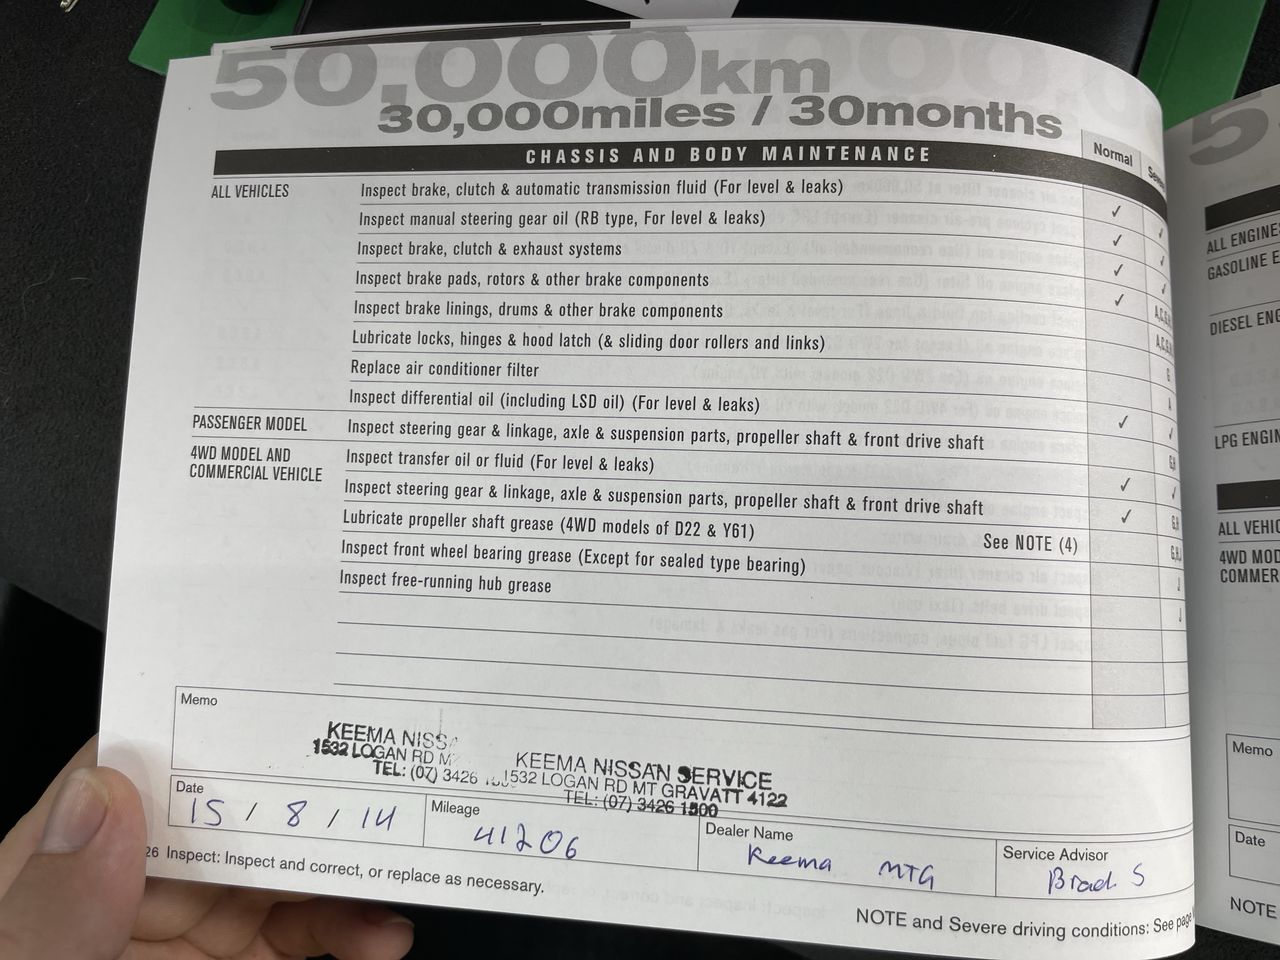 50,000km
30,000miles / 30months
CHASSIS AND BODY MAINTENANCE
Normal
ALL VEHICLES
Inspect brake, clutch & automatic transmission fluid (For level & leaks) ✓
Inspect manual steering gear oil (RB type, For level & leaks) ✓
Inspect brake, clutch & exhaust systems ✓
Inspect brake pads, rotors & other brake components ✓
Inspect brake linings, drums & other brake components
Lubricate locks, hinges & hood latch (& sliding door rollers and links)
Replace air conditioner filter
Inspect differential oil (including LSD oil) (For level & leaks) ✓
PASSENGER MODEL
Inspect steering gear & linkage, axle & suspension parts, propeller shaft & front drive shaft
4WD MODEL AND
COMMERCIAL VEHICLE
Inspect transfer oil or fluid (For level & leaks) ✓
Inspect steering gear & linkage, axle & suspension parts, propeller shaft & front drive shaft ✓
Lubricate propeller shaft grease (4WD models of D22 & Y61) See NOTE (4)
Inspect front wheel bearing grease (Except for sealed type bearing)
Inspect free-running hub grease
Memo
KEEMA NISSA
1532 LOGAN RD M
TEL: (07) 3426
KEEMA NISSAN SERVICE
1532 LOGAN RD MT GRAVATT 4122
TEL: (07) 3426 1500
Date
15 / 8 / 14
Mileage
41206
Dealer Name
Keema MTG
Service Advisor
Brad S
26 Inspect: Inspect and correct, or replace as necessary.
NOTE and Severe driving conditions: See page
5
ALL ENGINES
GASOLINE E
DIESEL ENG
LPG ENGIN
ALL VEHIC
4WD MOD
COMMER
Memo
Date
NOTE